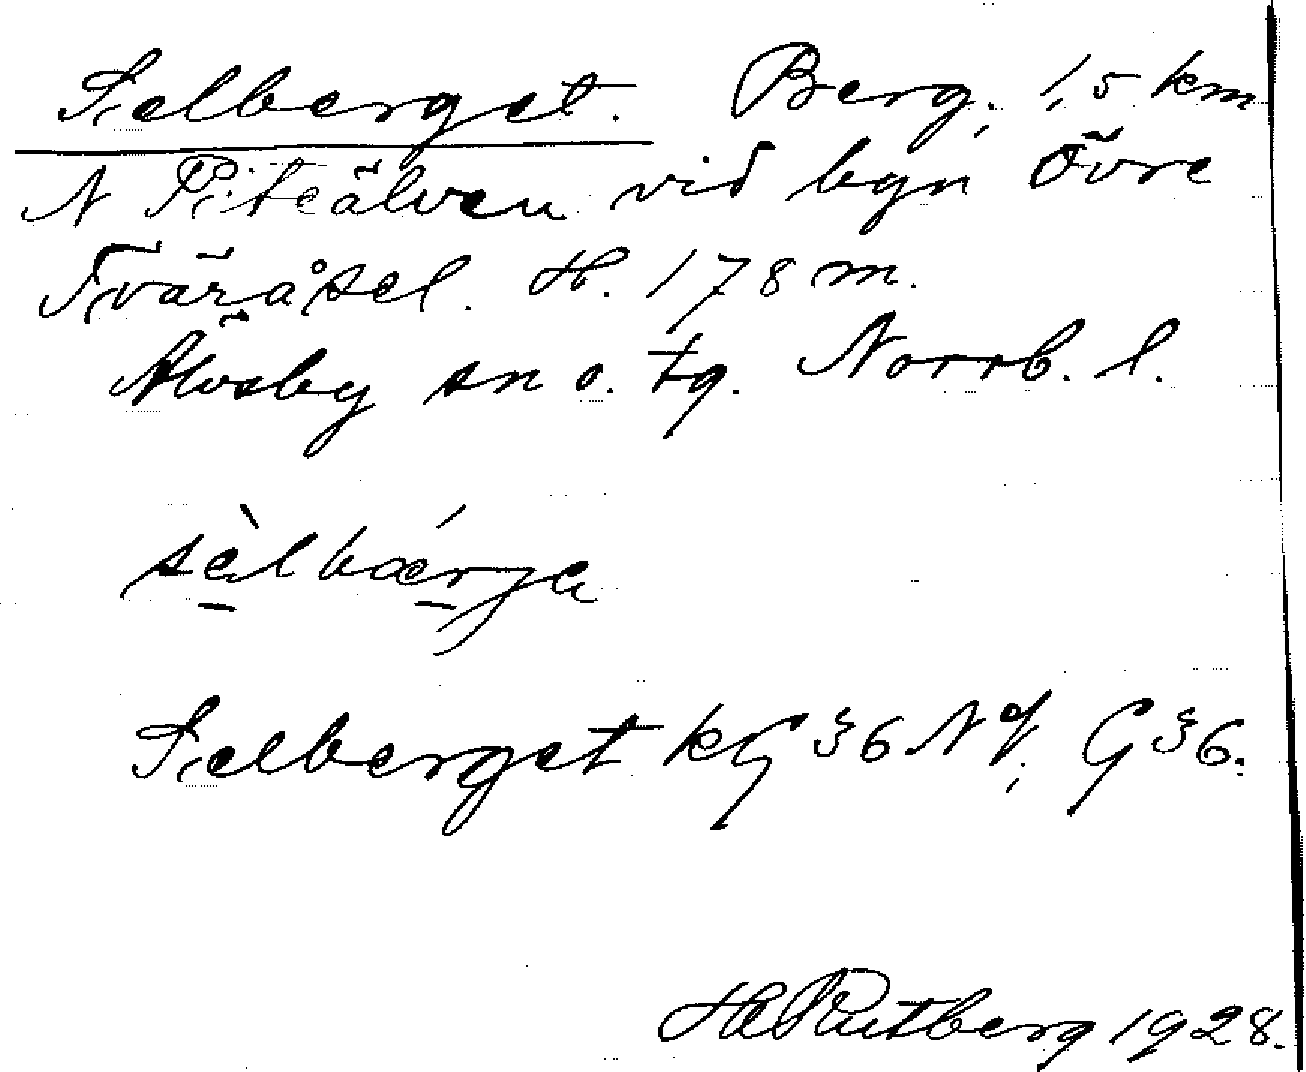 Selberget. Berg, 1,5 km
N Piteälven vid byn Övre
Tväråsel. H. 178 m.
Älvsby sn o. tg. Norrb. l.
sèlbǽrjɑ
Selberget kG 36 NV, G 36.
H Rutberg 1928.